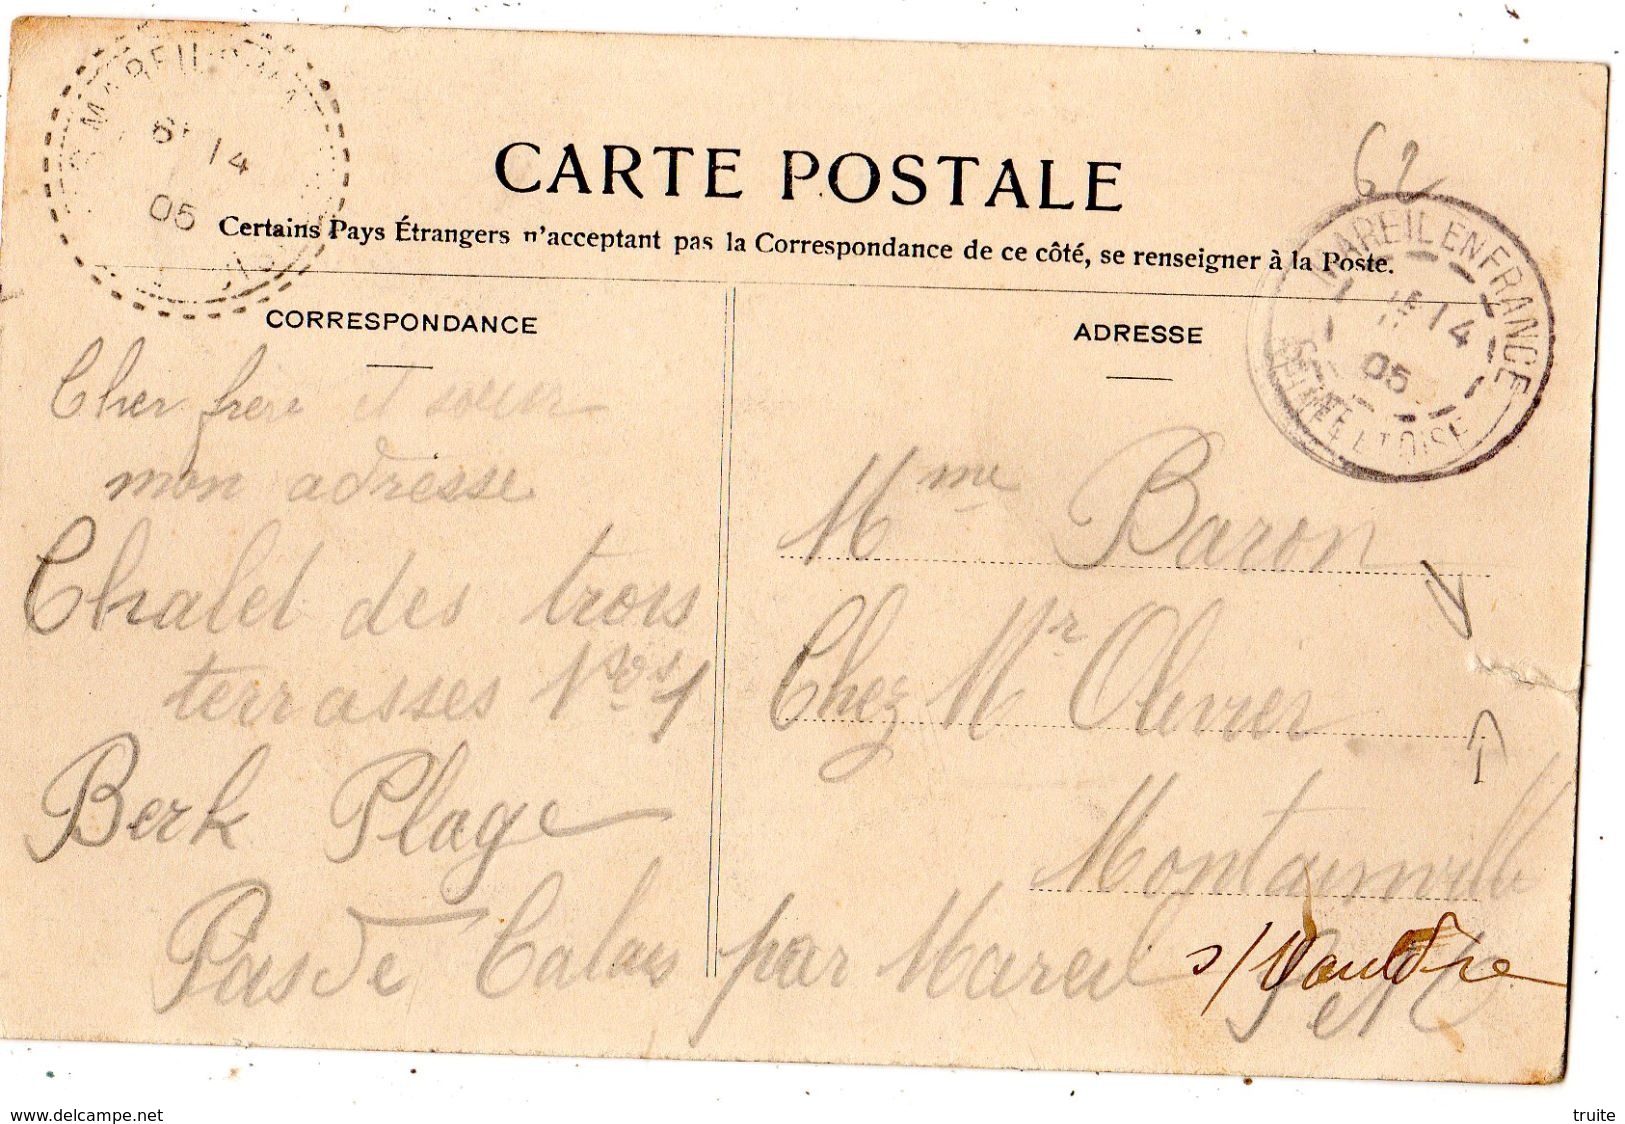 MAREIL
14
05
62
CARTE POSTALE
Certains Pays Étrangers n'acceptant pas la Correspondance de ce côté, se renseigner à la Poste.
MAREIL EN FRANCE
14
05
SEINE ET OISE
CORRESPONDANCE
Cher frère et soeur
mon adresse
Chalet des trois
terrasses Nos 1
Berk Plage
Pas de Calais
ADRESSE
Mme Baron
Chez Mr Olivier
Montainville
par Mareil s/Mauldre
S et O
delcampe.net
truite